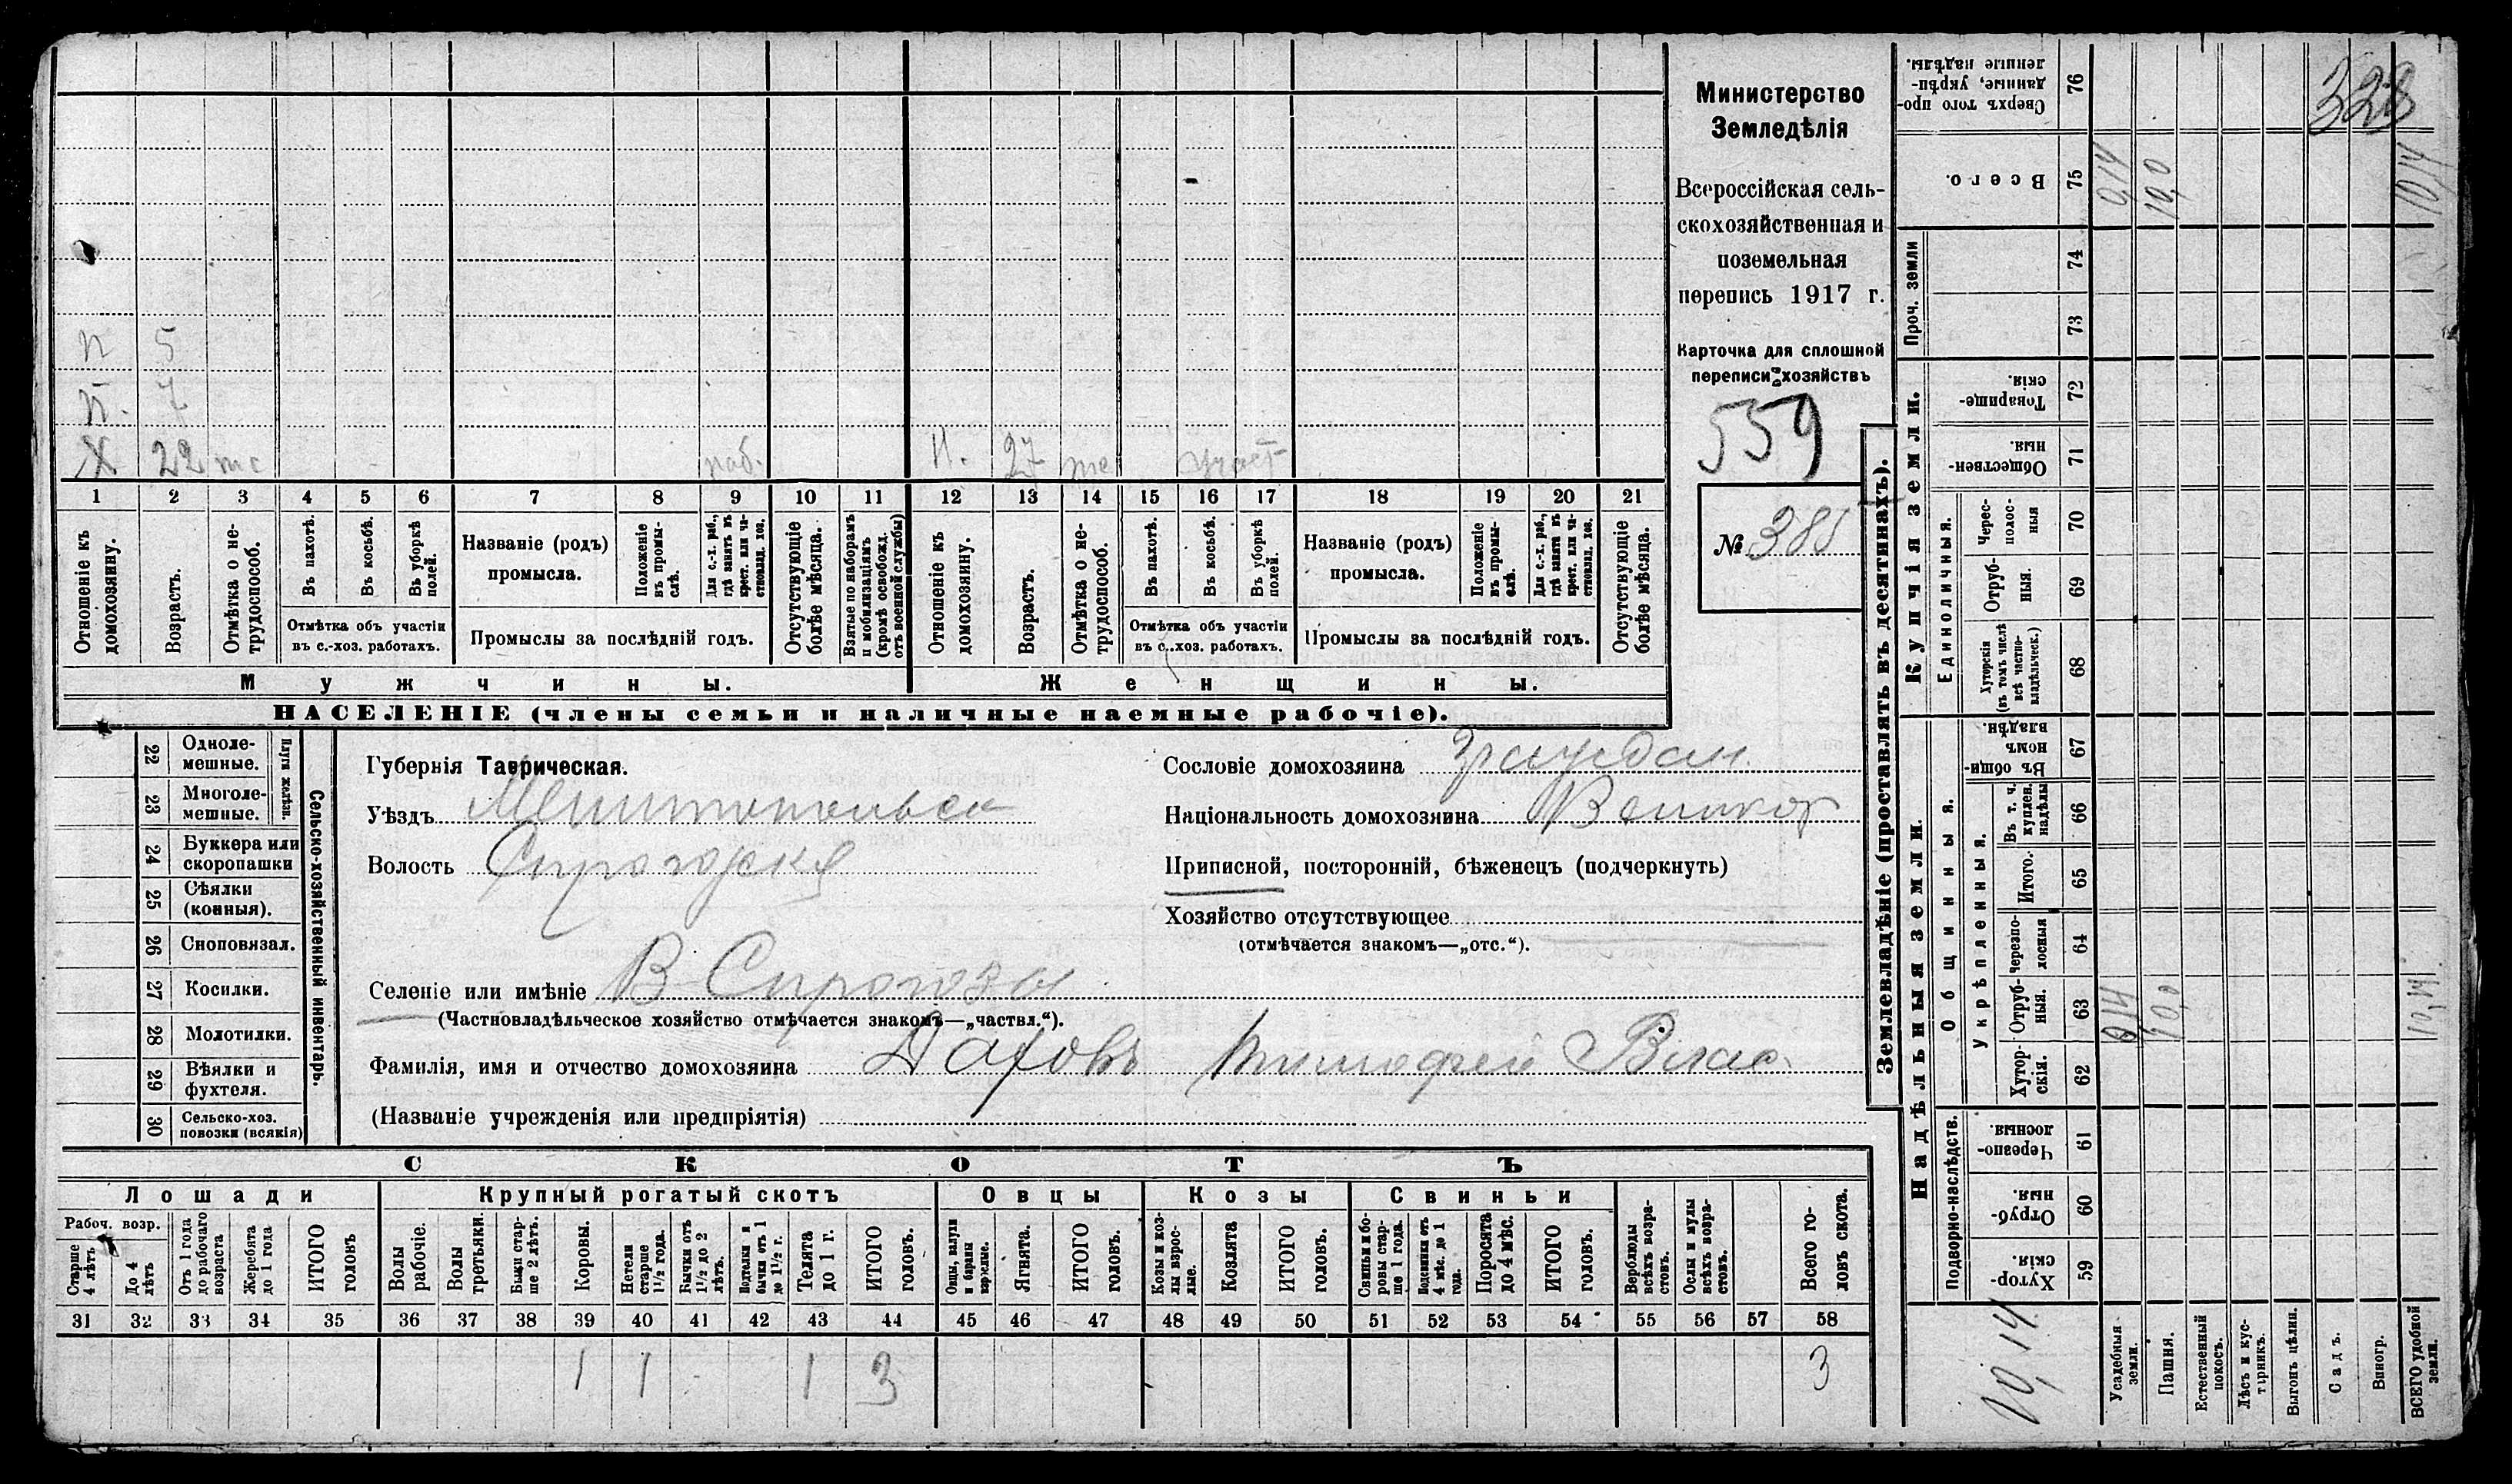 Министерство
Земледѣлія
Всероссійская сель-
скохозяйственная и
поземельная
перепись 1917 г.
Карточка для сплошной
переписи хозяйствъ
559
№ 385
328
п 5
п. 7
Х 22 тс раб. п. 27 те участ
1 2 3 4 5 6 7 8 9 10 11 12 13 14 15 16 17 18 19 20 21
Отношеніе къ домохозяину.
Возрастъ.
Отмѣтка о не-трудоспособ.
Въ пахотѣ.
Въ косьбѣ.
Въ уборкѣ полей.
Отмѣтка объ участіи
въ с.-хоз. работахъ.
Названіе (родъ)
промысла.
Положеніе въ промы-слѣ.
Для с.-х. раб., гдѣ занятъ въ крест. или ча-стновлад. хоз.
Промыслы за послѣдній годъ.
Отсутствующіе болѣе мѣсяца.
Взятые по наборамъ и мобилизаціямъ (кромѣ освобожд. отъ военной службы)
Отношеніе къ домохозяину.
Возрастъ.
Отмѣтка о не-трудоспособ.
Въ пахотѣ.
Въ косьбѣ.
Въ уборкѣ полей.
Отмѣтка объ участіи
въ с..хоз. работахъ.
Названіе (родъ)
промысла.
Положеніе въ промы-слѣ.
Для с.-х. раб., гдѣ занята въ крест. или ча-стновлад. хоз.
Промыслы за послѣдній годъ.
Отсутствующіе болѣе мѣсяца.
Мужчины. Женщины.
НАСЕЛЕНІЕ (члены семьи и наличные наемные рабочіе).
Сельско-хозяйственный инвентарь.
Плуги желѣзн.
22 Одноле-мешные.
23 Многоле-мешные.
24 Буккера или скоропашки
25 Сѣялки (конныя).
26 Сноповязал.
27 Косилки.
28 Молотилки.
29 Вѣялки и фухтеля.
30 Сельско-хоз. повозки (всякія)
Губернія Таврическая.
Уѣздъ Мелитопольск
Волость
Селеніе или имѣніе В Сирогозы
(Частновладѣльческое хозяйство отмѣчается знакомъ—„частвл.“).
Фамилія, имя и отчество домохозяина Даховъ Тимофей Влас.
(Названіе учрежденія или предпріятія)
Сословіе домохозяина граждан
Національность домохозяина Великор
Приписной, посторонній, бѣженецъ (подчеркнуть)
Хозяйство отсутствующее
(отмѣчается знакомъ—„отс.“).
СКОТЪ
Лошади Крупный рогатый скотъ Овцы Козы Свиньи
Рабоч. возр.
Старше 4 лѣтъ
До 4 лѣтъ
Отъ 1 года до рабочаго возраста
Жеребята до 1 года
ИТОГО головъ
Волы рабочіе.
Волы третьяки.
Быки стар-ше 2 лѣтъ.
Коровы.
Нетели старше 1½ года.
Бычки отъ 1½ до 2 лѣтъ.
Подтелки и бычки отъ 1 до 1½ г.
Телята до 1 г.
ИТОГО головъ.
Овцы, валухи и бараны взрослые.
Ягнята.
ИТОГО головъ.
Козы и коз-лы взрос-лые.
Козлята
ИТОГО головъ.
Свиньи и бо-ровы стар-ше 1 года.
Подсвинки отъ 4 мѣс. до 1 года.
Поросята до 4 мѣс.
ИТОГО головъ.
Верблюды всѣхъ возра-стовъ.
Ослы и мулы всѣхъ возра-стовъ.
Всего го-ловъ скота.
31 32 33 34 35 36 37 38 39 40 41 42 43 44 45 46 47 48 49 50 51 52 53 54 55 56 57 58
1 1 1 3 3
Землевладѣніе (проставлять въ десятинахъ).
Сверхъ того про-данные, укрѣп-ленные надѣлы. 76
Всего. 75 0,14 10,0 10,14
Проч. земли 74 73
Купчія земли.
Товарище-скія. 72
Обществен-ныя. 71
Единоличныя.
Черес-полос-ныя 70
Отруб-ныя. 69
Хуторскія (въ томъ числѣ всѣ частно-владѣльческ.) 68
Надѣльныя земли.
Общинныя.
Въ общи-номъ владѣн. 67
Укрѣпленныя.
Въ т. ч. куплен. надѣлы 66
Итого. 65
Черезпо-лосныя 64
Отруб-ныя. 63 0,14 10,0 10,14
Хутор-скія. 62
Подворно-наслѣдств.
Черезпо-лосныя 61
Отруб-ныя. 60
Хутор-скія. 59
10,14
Усадебныя земли.
Пашня.
Естественный покосъ.
Лѣсъ и кус-тарникъ.
Выгонъ цѣлин.
Садъ.
Виногр.
ВСЕГО удобной земли.